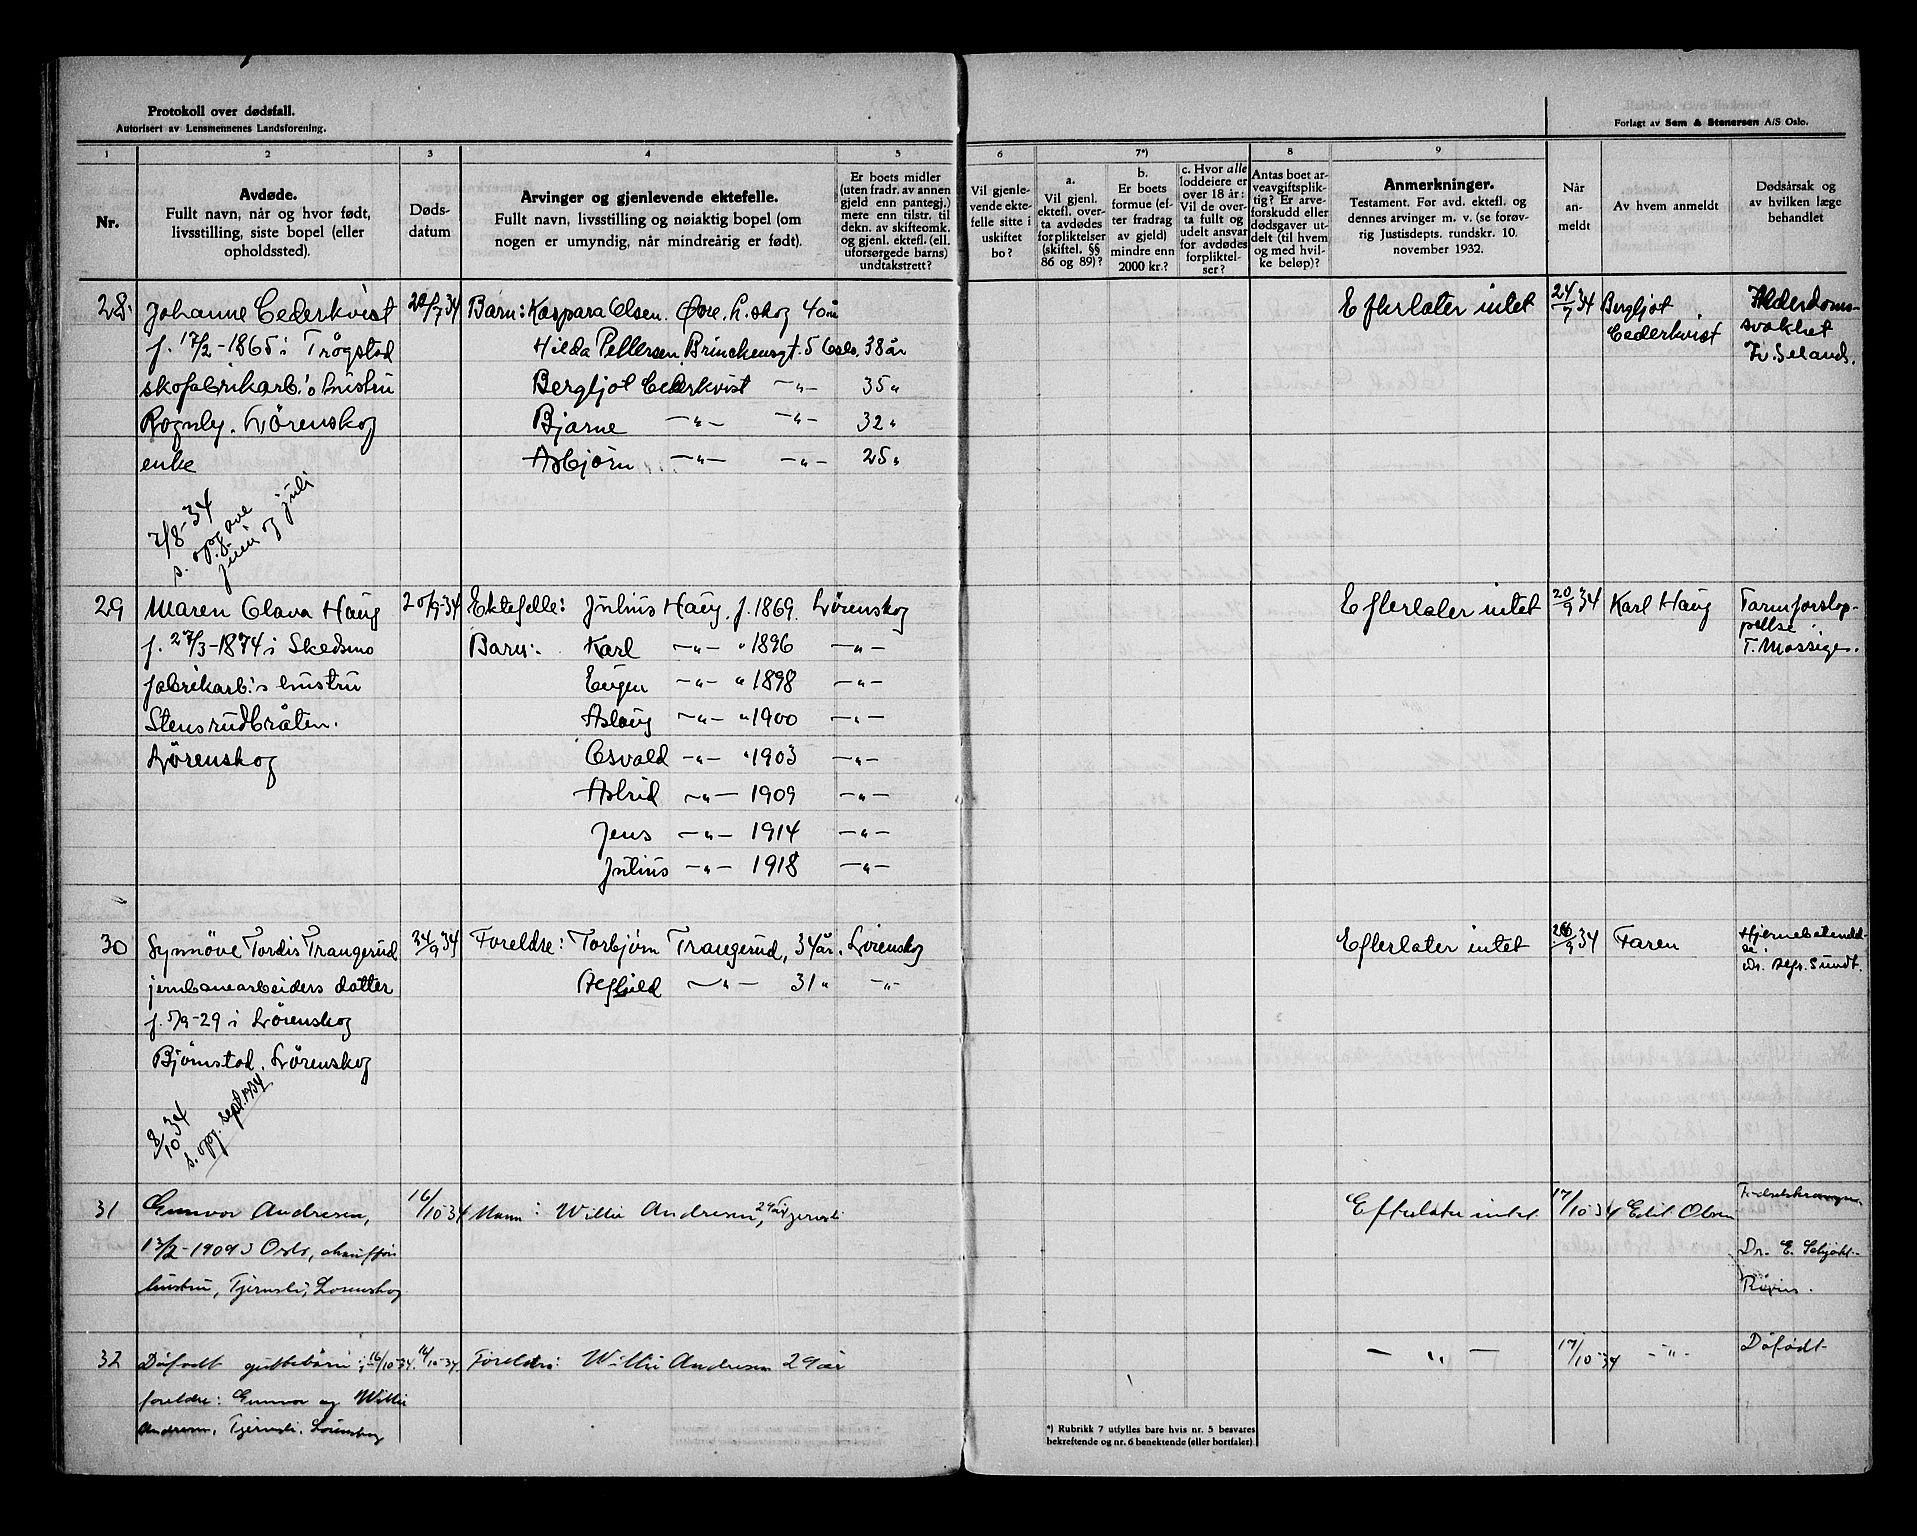 Protokoll over dødsfall.
Autorisert av Lensmennenes Landsforening.
Forlagt av Sem & Stenersen A/S Oslo.
1 2 3 4 5 6 7*) 8 9
Nr.
Avdøde.
Fullt navn, når og hvor født,
livsstilling, siste bopel (eller
opholdssted).
Døds-
datum
Arvinger og gjenlevende ektefelle.
Fullt navn, livsstilling og nøiaktig bopel (om
nogen er umyndig, når mindreårig er født).
Er boets midler
(uten fradr. av annen
gjeld enn pantegj.)
mere enn tilstr. til
dekn. av skifteomk.
og gjenl. ektefl. (ell.
uforsørgede barns)
undtakstrett?
Vil gjenle-
vende ekte-
felle sitte i
uskiftet
bo?
a.
Vil gjenl.
ektefl. over-
ta avdødes
forpliktelser
(skiftel. §§
86 og 89)?
b.
Er boets
formue (ef-
ter fradrag
av gjeld)
mindre enn
2000 kr.?
c. Hvor alle
loddeiere er
over 18 år:
Vil de over-
ta fullt og
udelt ansvar
for avdødes
forpliktel-
ser?
Antas boet ar-
veavgiftsplik-
tig? Er arve-
forskudd eller
dødsgaver ut-
delt (til hvem
og med hvil-
ke beløp)?
Anmerkninger.
Testament. Før avd. ektefl. og
dennes arvinger m. v. (se forøv-
rig Justisdepts. rundskr. 10.
november 1932.
Når
an-
meldt
Av hvem anmeldt
Dødsårsak og
av hvilken læge
behandlet
28. Johanne Cederkvist 20/7 34 Barn: Kaspara Olsen. Øvre L.skog 40 år Efterlater intet 24/7 34 Bergljot Alderdoms-
f. 17/2-1865 i Trøgstad Hilda Pettersen, Brinckensgt. 5 Oslo. 38 år Cederkvist svakhet
skofabrikarb.s hustru Bergljot Cederkvist —"— 35 " Fr. Selands.
Rognly. Lørenskog Bjarne —"— —"— 32 "
enke Asbjørn —"— —"— 25 "
7/8-34
s. opgave
juni og juli
29 Maren Olava Haug 20/9-34 Ektefelle: Julius Haug. f. 1869. Lørenskog Efterlater intet 20/9 34 Karl Haug Tarmforstop-
f. 27/3-1874 i Skedsmo Barn: Karl —"— " 1896 —"— pelse
fabrikarb.s hustru Eugen —"— " 1898 —"— T. Mossige.
Stensrudbråten. Aslaug —"— " 1900 —"—
Lørenskog Osvald —"— " 1903 —"—
Astrid —"— 1909 —"—
Jens —"— 1914 —"—
Julius —"— 1918 —"—
30 Synnöve Tordis Trangerud 24/9 34 Foreldre: Torbjörn Trangerud, 34 år. Lörenskog Efterlater intet 26/9 34 Faren Hjernebetendel-
jernbanearbeiders datter 31 " —"— se
f. 5/9-29 i Lörenskog Dr. Alfr. Sundt.
Björnstad. Lörenskog
8/10 34
s. opg. sept. 1934
31 Gunvor Andresen, 16/10-34 Mann: Willie Andresen, 29 år, Tjernsli Efterlater intet 17/10-34 Edit Olsen
13/2-1909 i Oslo, chauffør
hustru, Tjernsli, Lørenskog Dr. E. Schjøht-
32 Døfødt guttebarn 16/10-34. 16/10-34. Foreldre: Willie Andresen 29 år —"— 17/10-34 —"— Døfødt
foreldre: Gunvor og Willie
Andresen, Tjernsli, Lørenskog
*) Rubrikk 7 utfylles bare hvis nr. 5 besvares
bekreftende og nr. 6 benektende (eller bortfaler)